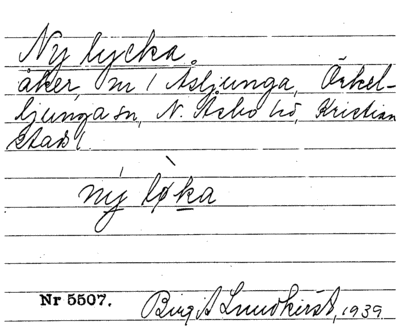 Ny lycka.
åker, m / Åsljunga, Örkel-
ljunga sn, N. Åsbo hd, Kristian
stads l
ný lø̀ka
Nr 5507.
Birgit Lundkvist, 1939